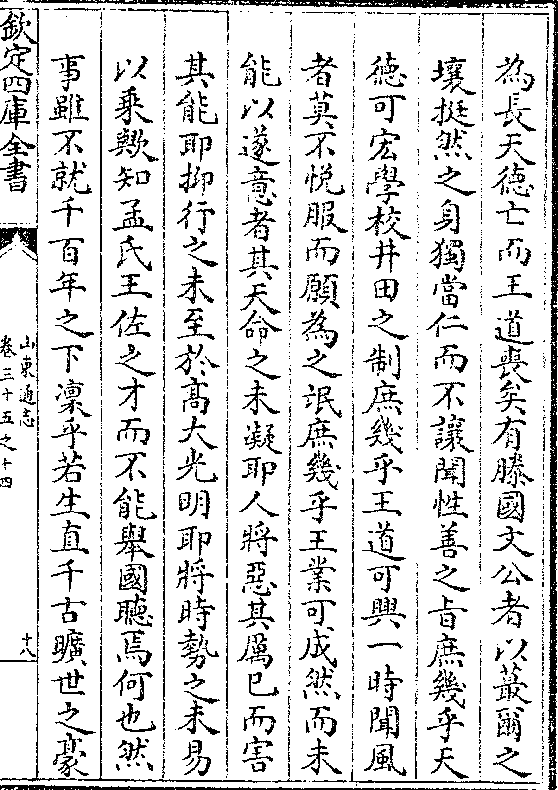 為長天德亡而王道喪矣有滕國文公者以蕞爾之
壤挺然之身獨當仁而不讓聞性善之旨庶幾乎天
德可宏學校井田之制庶幾乎王道可興一時聞風
者莫不悦服而願為之氓庶幾乎王業可成然而未
能以遂意者其天命之未凝耶人將惡其厲已而害
其能耶抑行之未至於髙大光明耶將時勢之未易
以乘歟知孟氏王佐之才而不能舉國聽焉何也然
事雖不就千百年之下凜乎若生直千古曠世之豪
欽定四庫全書
山東通志
卷三十五之十四
十八